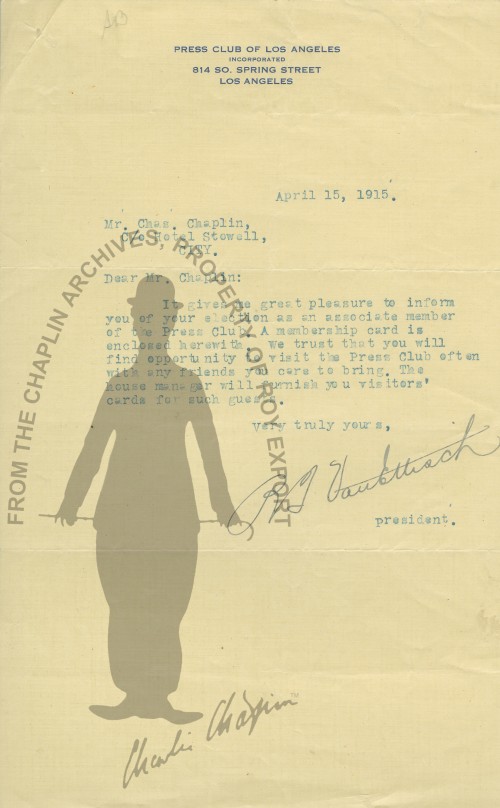 PRESS CLUB OF LOS ANGELES
INCORPORATED
814 SO. SPRING STREET
LOS ANGELES
April 15, 1915.
Mr. Chas. Chaplin,
C/o Hotel Stowell,
CITY.
Dear Mr. Chaplin:
It gives me great pleasure to inform
you of your election as an associate member
of the Press Club. A membership card is
enclosed herewith. We trust that you will
find opportunity to visit the Press Club often
with any friends you care to bring. The
house manager will furnish you visitors'
cards for such guests.
Very truly yours,
president.
FROM THE CHAPLIN ARCHIVES, PROPERTY OF ROY EXPORT
Charlie Chaplin™